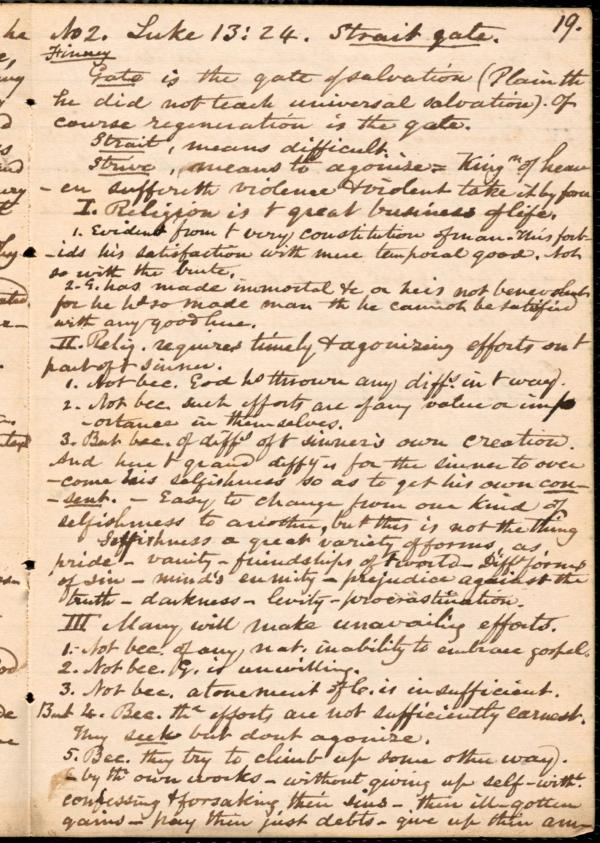 19.
No 2. Luke 13:24. Strait gate.
Finney
Gate is the gate of salvation (Plain th
he did not teach universal salvation). Of
course regeneration is the gate.
Strait, means difficult
Strive, means to agonize = Kingm of heav
-en suffereth violence & violent take it by force
I. Religion is t great business of life.
1. Evident from t very constitution of man. This forb-
-ids his satisfaction with mere temporal good. Not
so with the brute.
2. G. has made immortal &c or he is not benevolent
for he hs so made man th he cannot be satisfied
with any good here.
II. Relig. requires timely & agonizing efforts on t
part of t sinner.
1. Not bec. God hs thrown any diffs. in t way.
2. Not bec. such efforts are of any value or imp
-ortance in themselves.
3. But bec. of diffs of t sinner's own creation.
And here t grand diffty is for the sinner to over
-come his selfishness so as to get his own con-
-sent. - Easy to change from one kind of
selfishness to another, but this is not the thing
Selfishness a great variety of forms, as
pride - vanity - friendships of t world - Difft forms
of sin - mind's enmity - prejudice against the
truth - darkness - levity - procrastination.
III Many will make unavailing efforts.
1. Not bec. of any nat. inability to embrace gospel.
2. Not bec. G. is unwilling.
3. Not bec. atonement of C. is insufficient.
But 4. Bec. thr efforts are not sufficiently earnest.
They seek but dont agonize.
5. Bec. they try to climb up some other way).
- by thr own works - without giving up self - witht.
confessing & forsaking their sins - their ill-gotten
gains - pay their just debts - give up their am-